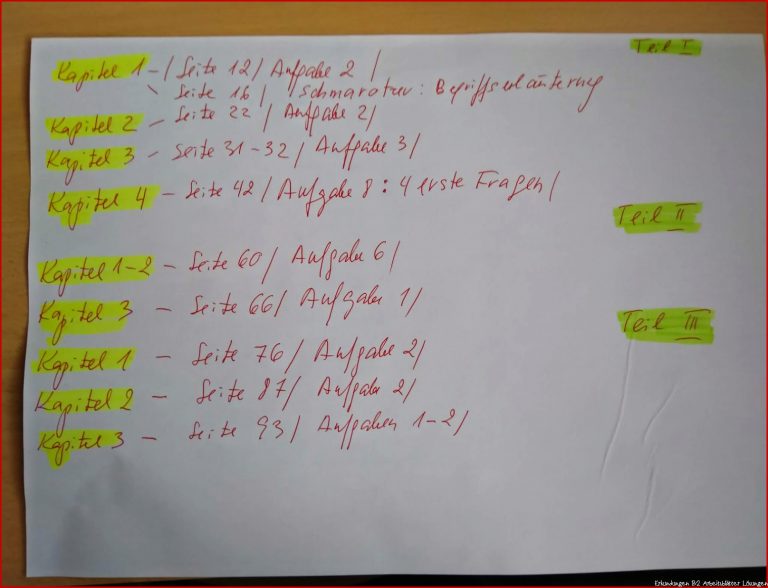 Teil I
Kapitel 1 - / Seite 12 / Aufgabe 2 /
Seite 16 / Schmarotzer: Begriffserläuterung
Kapitel 2 - Seite 22 / Aufgabe 2 /
Kapitel 3 - Seite 31-32 / Aufgabe 3 /
Kapitel 4 - Seite 42 / Aufgabe 8 : 4 erste Fragen /
Teil II
Kapitel 1-2 - Seite 60 / Aufgabe 6 /
Kapitel 3 - Seite 66 / Aufgabe 1 /
Teil III
Kapitel 1 - Seite 76 / Aufgabe 2 /
Kapitel 2 - Seite 87 / Aufgabe 2 /
Kapitel 3 - Seite 93 / Aufgaben 1-2 /
Erkundungen B2 Arbeitsblätter Lösungen